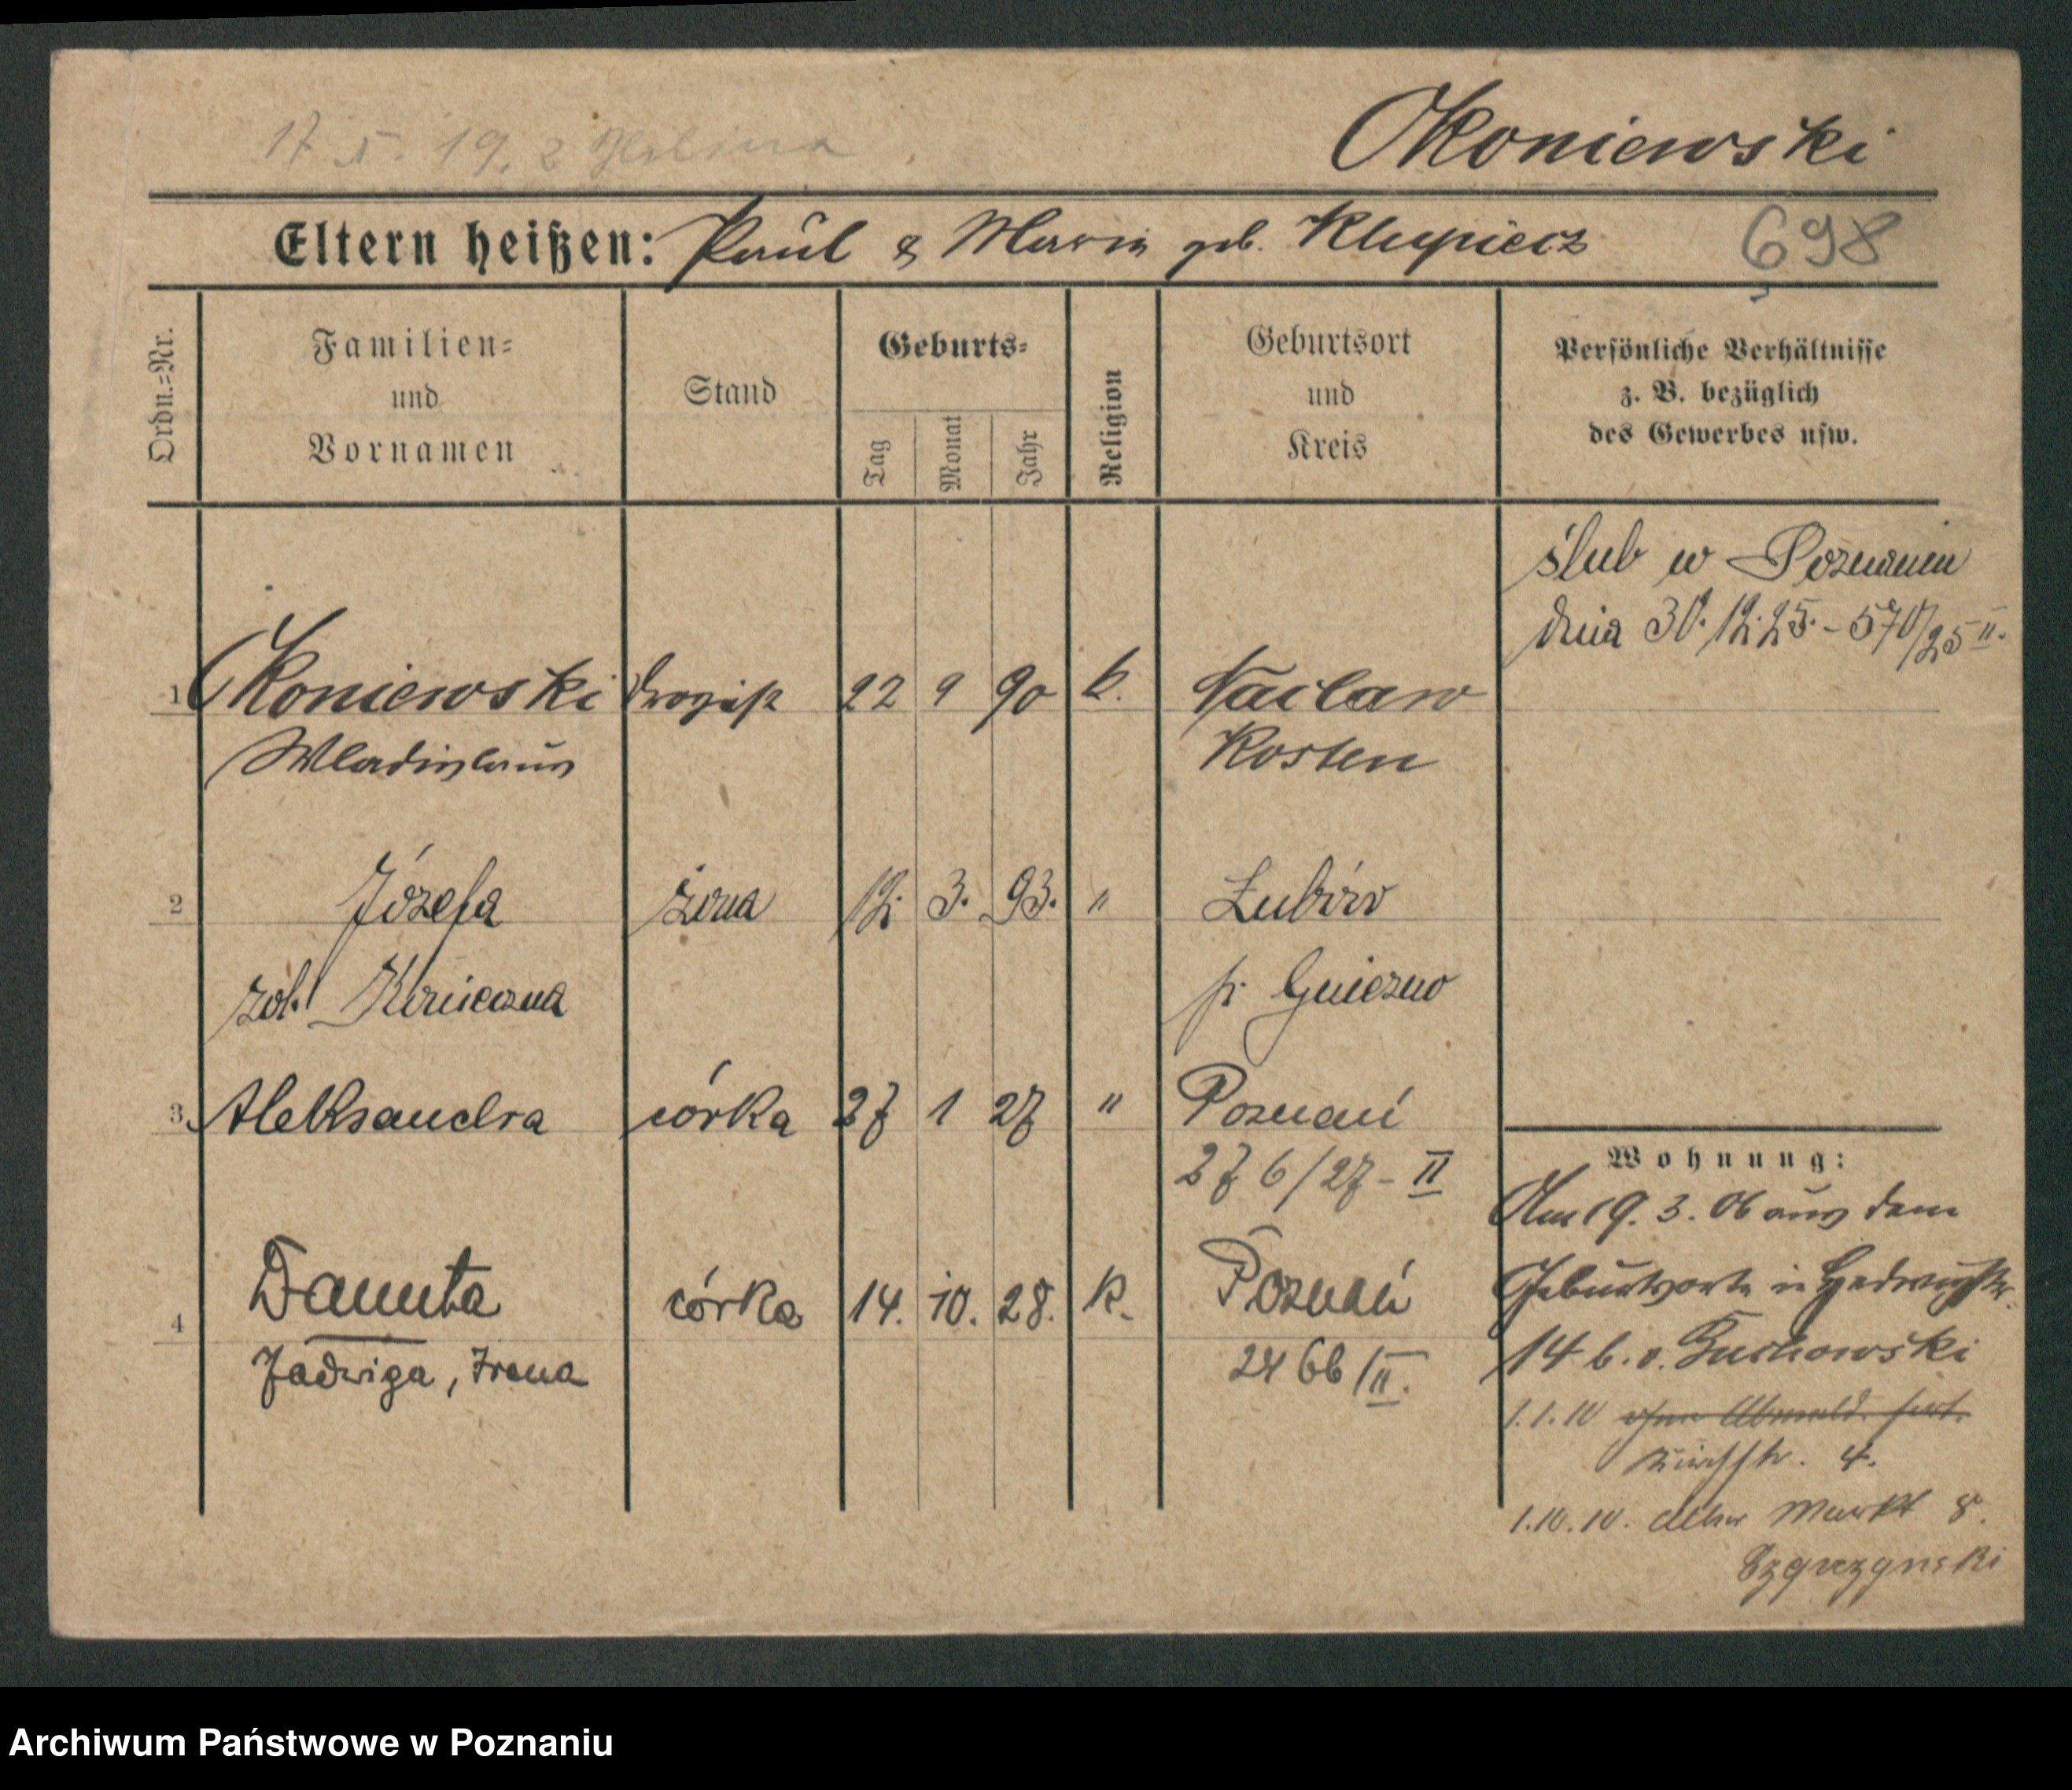 17. 5. 19.2
Okoniewski
Eltern heißen: Paul & Maria geb. Klupiecz
698
Ordn.=Nr.
Familien=
und
Vornamen
Stand
Geburts=
Tag
Monat
Jahr
Religion
Geburtsort
und
Kreis
Persönliche Verhältnisse
z. B. bezüglich
des Gewerbes usw.
ślub w Poznaniu
dnia 30.12.25. - 570/25 II.
1 Okoniewski Drogist 22 9 90 k. Raclaw
Wladislaus Kosten
2 Józefa żona 12. 3. 93. " Łubów
rod. Konieczna p. Gniezno
3 Aleksandra córka 27 1 27 " Poznań
276/27 - II
4 Danuta córka 14. 10. 28. k. Poznań
Jadwiga, Irena 2466/II.
Wohnung:
Am 19. 3. 06 aus dem
Geburtsorte in Hedwigstr.
14 b. v. Suchowski
1.1.10 ohne Abmeld. fort.
4.
1.10.10. Alter Markt 8.
Czepczynski
Archiwum Państwowe w Poznaniu